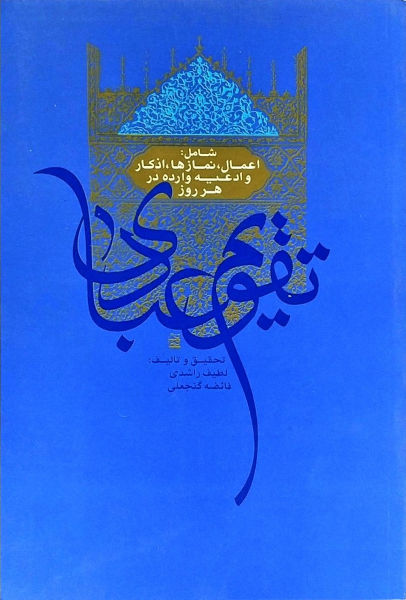 شامل:
اعمال، نمازها، اذکار
و ادعیه وارده در
هر روز
تقویم عبادی
تحقیق و تالیف:
لطیف راشدی
فائضه گنجعلی